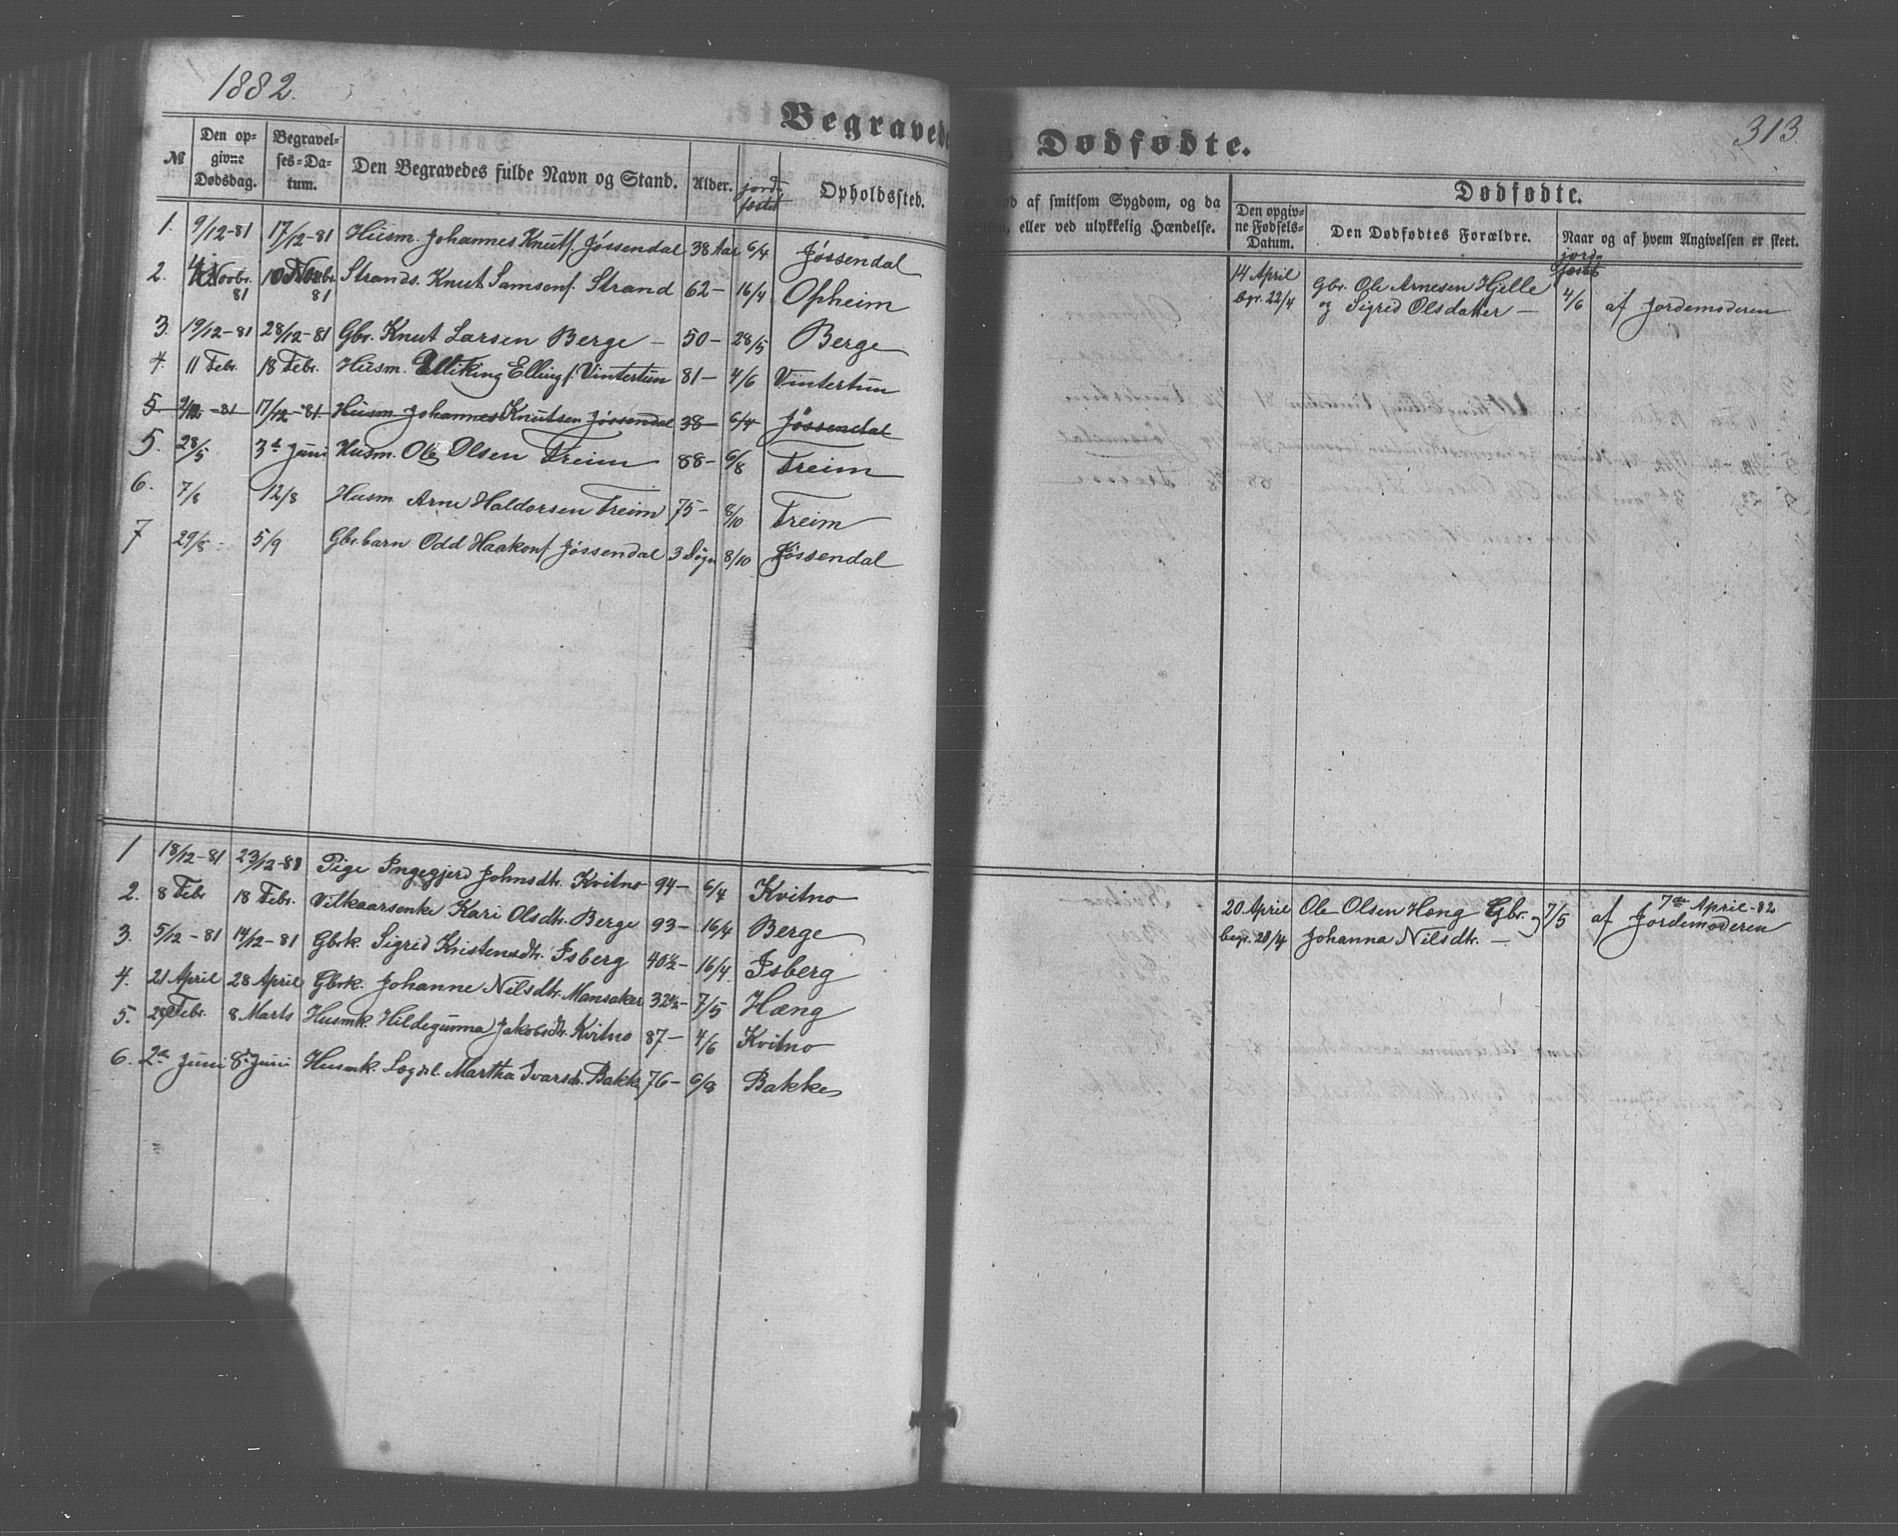 1882.
313
Begravede
Dødfødte.
№ Den opgivne Dødsdag. Begravelses-Datum. Den Begravedes fulde Navn og Stand. Alder. jordfæstet Opholdssted.
1. 9/12-81 17/12-81 Husm. Johannes Knuts. Jøssendal 38 Aar 6/4 Jøssendal
2. Novbr. 81 10 Novbr. 81 Strands. Knut Samsons. Strand 62- 16/4 Opheim
3. 19/12-81 28/12-81 Gbr. Knut Larsen Berge - 50- 28/5 Berge
4. 11 Febr. 18 Febr. Husm. Elling s. Vintertun 81- 4/6 Vintertun
5 9/12-81 17/12-81 Husm. Johannes Knutsen Jøssendal 38- 6/4 Jøssendal
5. 28/5 3d Juni Husm. Ole Olsen Treim 88- 6/8 Treim
6. 7/8 12/8 Husm Arne Haldorsen Treim 75- 8/10 Treim
7 29/8 5/9 Gbr.barn Odd Haakons. Jøssendal 3 Døgn 8/10 Jøssendal
1 18/12-81 23/12-81 Pige Ingegjerd Johnsdtr. Kvitno 94- 6/4 Kvitno
2. 8 Febr 18 Febr. Vilkaarsenke Kari Olsdtr. Berge 93- 16/4 Berge
3. 5/12-81 14/12-81 Gbrk. Sigrid Kristensdtr. Isberg 40½- 16/4 Isberg
4. 21 April 28 April Gbrk. Johanne Nilsdtr. Mansaker 32½- 7/5 Hæng
5. Febr. 8 Marts Husmk. Hildegunna Jakobsdtr. Kvitno 87- 4/6 Kvitno
6. 2d Juni 8d Juni Husmk. Lægdsl. Martha Ivarsdr. Bakke 76- 6/8 Bakke
af smitsom Sygdom, og da
eller ved ulykkelig Hændelse.
Dødfødte.
Den opgivne Fødsels-Datum. Den Dødfødtes Forældre. jordfæstet Naar og af hvem Angivelsen er skeet.
14 April Gbr. Ole Arnesen Hjelle
begr. 22/4 og Sigrid Olsdatter - 4/6 af Jordemoderen
20 April Ole Olsen Hæng Gbr. og 7/5 7de April-82
begr. 28/4 Johanna Nilsdtr. - af Jordemoderen